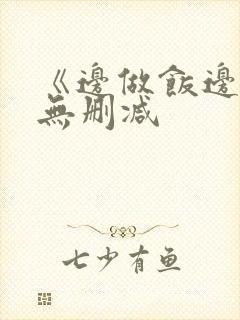 《邊做飯邊
無刪減
七少有鱼